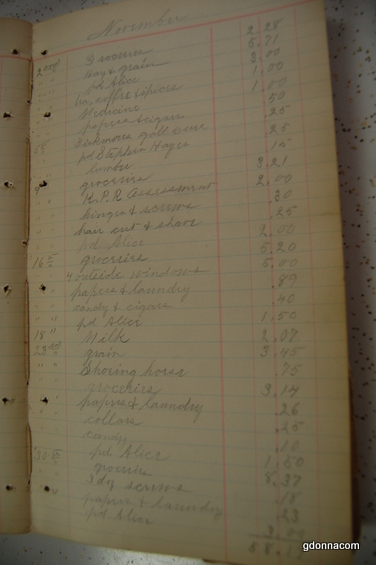 November
2nd Groceries 2.28
Hay & grain 5.71
pd Alice 3.00
Tea, coffee & spices 1.00
Medicine 1.00
papers & cigars .50
gall cure .25
5th pd Stephen Hayes .25
.15
groceries 3.21
9 K.P.R. Assessment 2.00
hinges & screws .30
hair cut & shave .25
pd. Alice 2.00
16th groceries 5.20
4 outside windows 5.00
papers & laundry .89
candy & cigars .40
" " pd Alice 1.50
18 " Milk 2.07
23rd grain 3.45
Shoeing horse .75
groceries 3.14
papers & laundry .26
collars .25
candy .10
30th pd Alice 1.50
groceries 8.37
screws .18
papers & laundry .23
pd Alice 3.00
gdonnacom